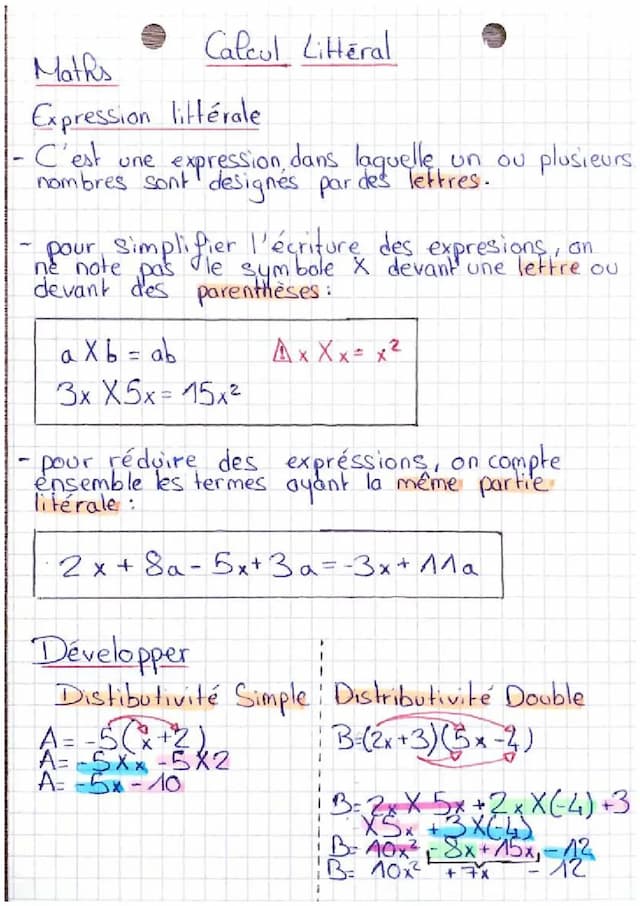 Calcul Littéral
Maths
Expression littérale
- C'est une expression dans laquelle un ou plusieurs
nombres sont designés par des lettres.
- pour simplifier l'écriture des expresions, on
ne note pas le symbole X devant une lettre ou
devant des parenthèses :
a X b = ab
⚠ x X x = x²
3x X 5x = 15x²
- pour réduire des expréssions, on compte
ensemble les termes ayant la même partie
litérale :
2x + 8a - 5x + 3a = -3x + 11a
Développer
Distibutivité Simple
A = -5(x+2)
A = -5 X x -5 X 2
A = -5x - 10
Distributivité Double
B=(2x+3)(5x-4)
B= 2x X 5x + 2x X(-4) +3
X5x +3X(-4)
B= 10x² -8x+15x -12
B= 10x² +7x - 12